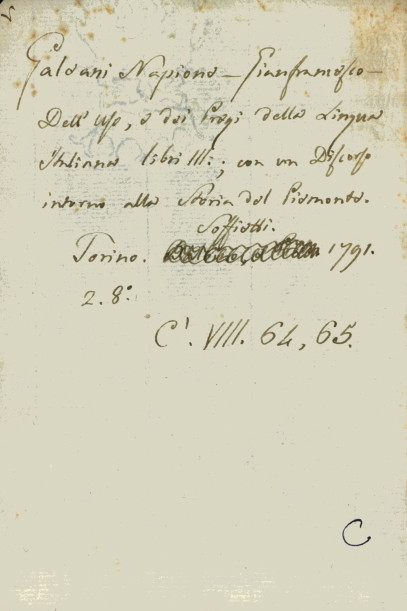 Galeani Napione — Gianfrancesco —
Dell' Uso, e dei Pregi della Lingua
Italiana libri III.; con un Discorso
intorno alla Storia del Piemonte.
Soffietti.
Torino. 1791.
2. 8.°
C'. VIII. 64, 65.
C